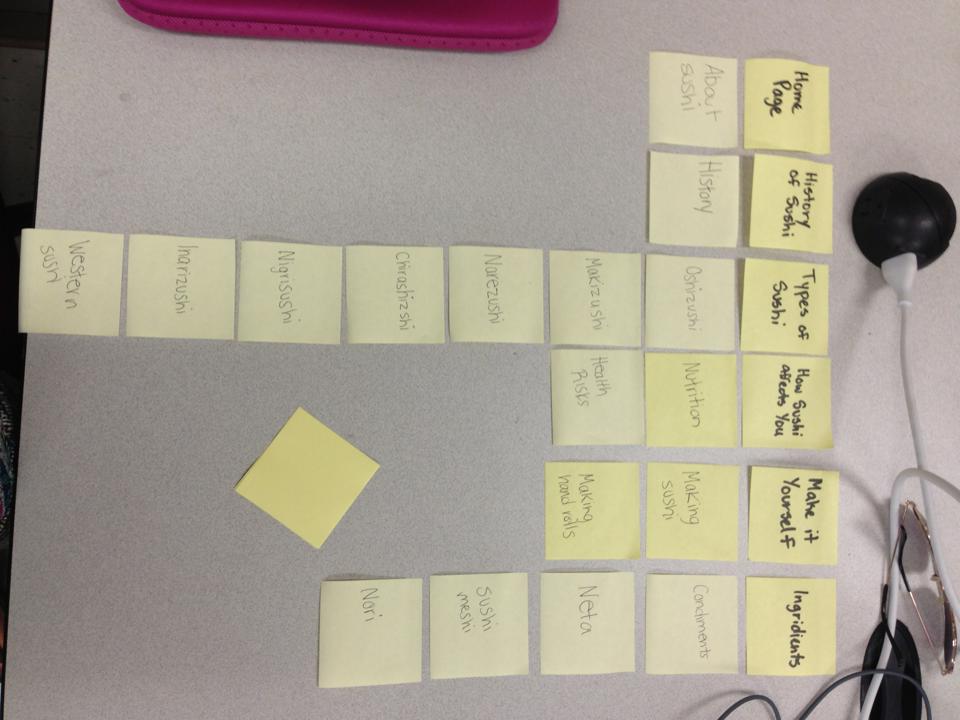 Home
Page
About
sushi
History
of Sushi
History
Types of
Sushi
Oshizushi
Makizushi
Narezushi
Chirashizshi
Nigrisushi
Inarizushi
Western
sushi
How Sushi
affects You
Nutrition
Health
Risks
Make it
Yourself
Making
sushi
Making
hand rolls
Ingridients
Condiments
Neta
Sushi
meshi
Nori